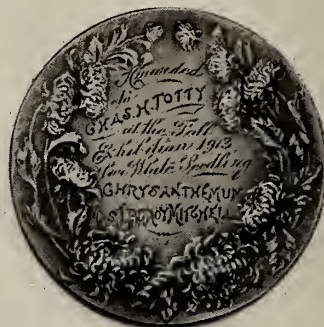 Awarded
to
CHAS. H. TOTTY
at the Fall
Exhibition 1912
for White Seedling
CHRYSANTHEMUM
MITCHELL